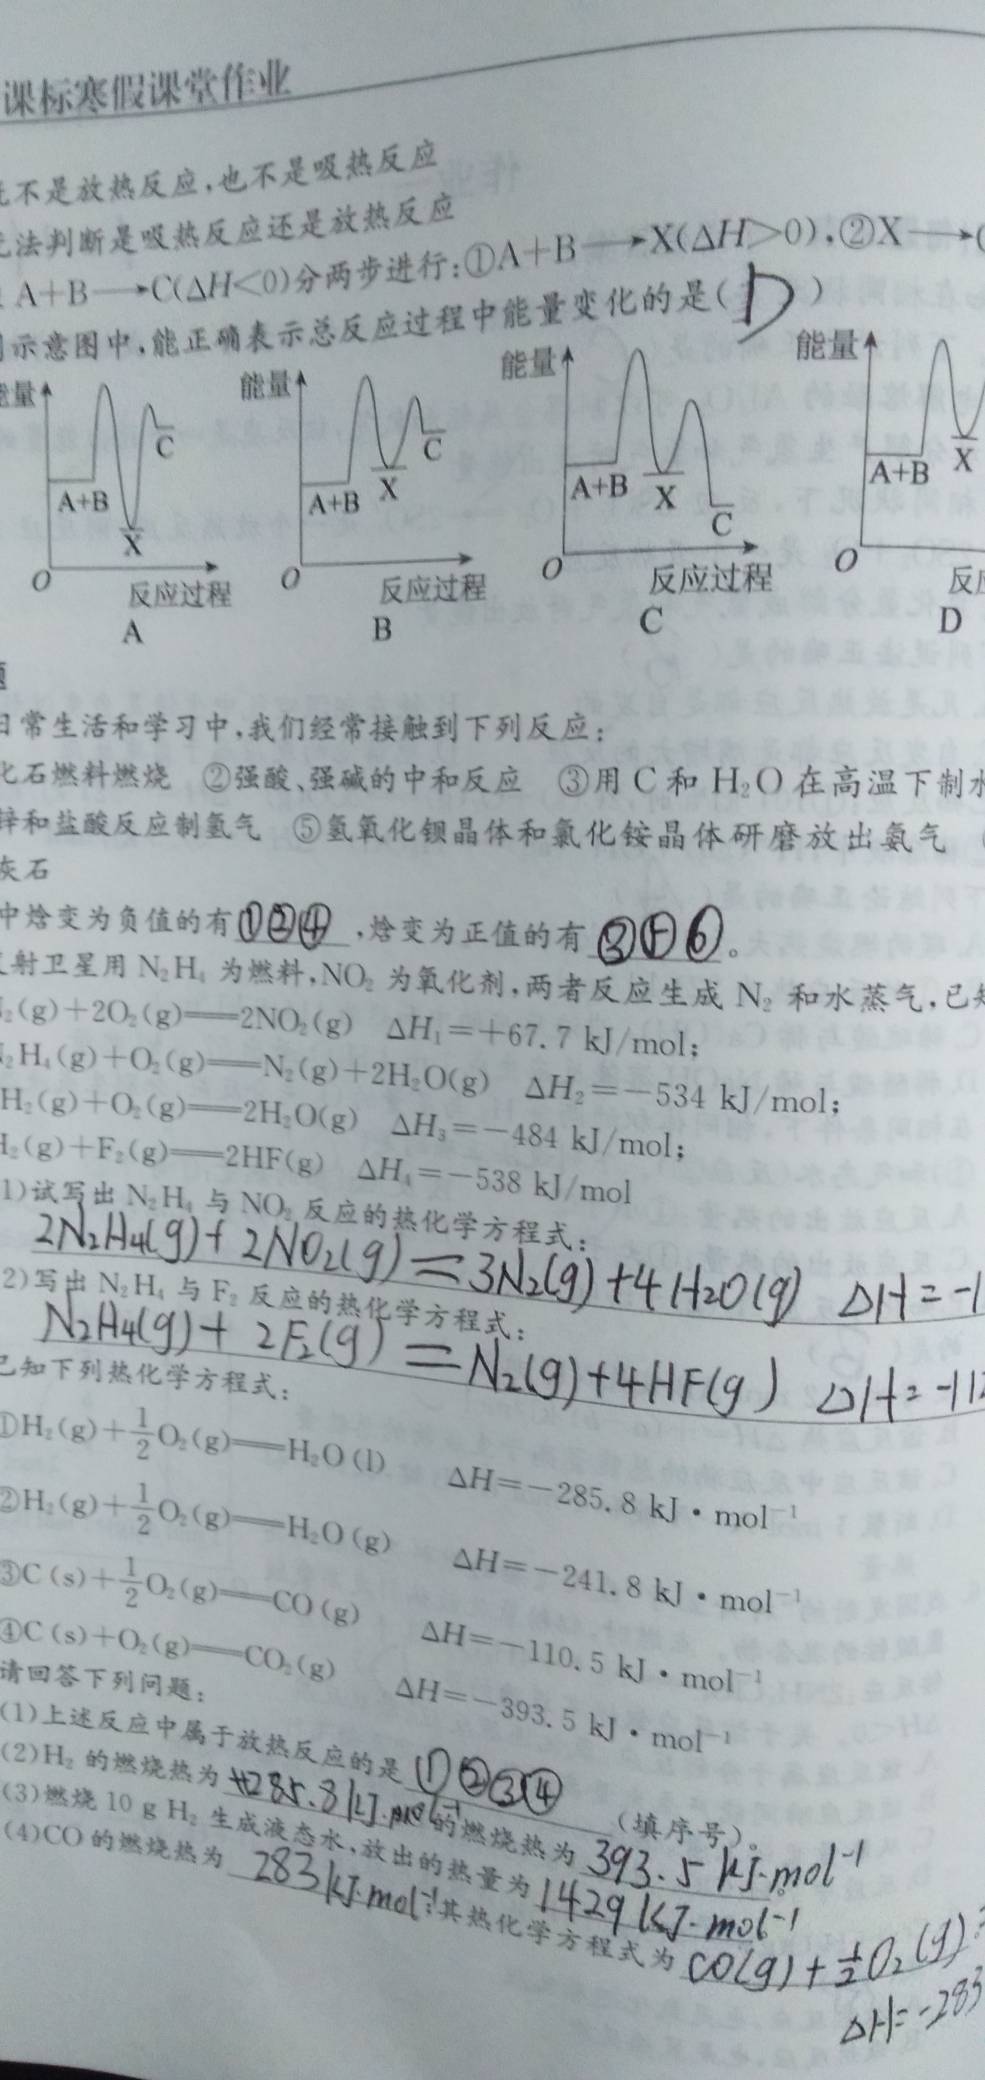 课标寒假课堂作业
不是放热反应,也不是吸热反应
法判断是吸热反应还是放热反应
A+B⟶C(ΔH<0)分两步进行:①A+B⟶X(ΔH>0),②X⟶
示意图中,能正确表示总反应过程中能量变化的是( D )
能量 能量 能量 能量
A+B X C
A+B X C
A+B X C
A+B X
O 反应过程 O 反应过程 O 反应过程 O 反
A B C D
日常生活和学习中,我们经常接触到下列反应:
化石燃料燃烧 ②强酸、强碱的中和反应 ③用 C 和 H₂O 在高温下制水
锌和盐酸反应制氢气 ⑤氢氧化钡晶体和氯化铵晶体研磨放出氨气
灰石
中焓变为负值的有①②④,焓变为正值的有③⑤⑥。
射卫星用 N₂H₄ 为燃料,NO₂ 为氧化剂,两者反应生成 N₂ 和水蒸气,已知
₂(g)+2O₂(g)══2NO₂(g) ΔH₁=+67.7 kJ/mol;
₂H₄(g)+O₂(g)══N₂(g)+2H₂O(g) ΔH₂=-534 kJ/mol;
H₂(g)+O₂(g)══2H₂O(g) ΔH₃=-484 kJ/mol;
H₂(g)+F₂(g)══2HF(g) ΔH₄=-538 kJ/mol
1)试写出 N₂H₄ 与 NO₂ 反应的热化学方程式:
2N₂H₄(g)+2NO₂(g)=3N₂(g)+4H₂O(g) ΔH=-1
2)写出 N₂H₄ 与 F₂ 反应的热化学方程式:
N₂H₄(g)+2F₂(g)=N₂(g)+4HF(g) ΔH=-11
已知下列热化学方程式:
①H₂(g)+1/2O₂(g)══H₂O(l) ΔH=-285.8 kJ·mol⁻¹
②H₂(g)+1/2O₂(g)══H₂O(g) ΔH=-241.8 kJ·mol⁻¹
③C(s)+1/2O₂(g)══CO(g) ΔH=-110.5 kJ·mol⁻¹
④C(s)+O₂(g)══CO₂(g) ΔH=-393.5 kJ·mol⁻¹
请回答下列问题:
(1)上述反应中属于放热反应的是 ①②③④ (填序号)。
(2)H₂ 的燃烧热为 285.8kJ·mol⁻¹ 的燃烧热为 393.5 kJ·mol⁻¹
(3)燃烧 10 g H₂ 生成液态水,放出的热量为 1429kJ·mol⁻¹。
(4)CO 的燃烧热为 283kJ·mol⁻¹;其热化学方程式为 CO(g)+1/2O₂(g)
ΔH=-283